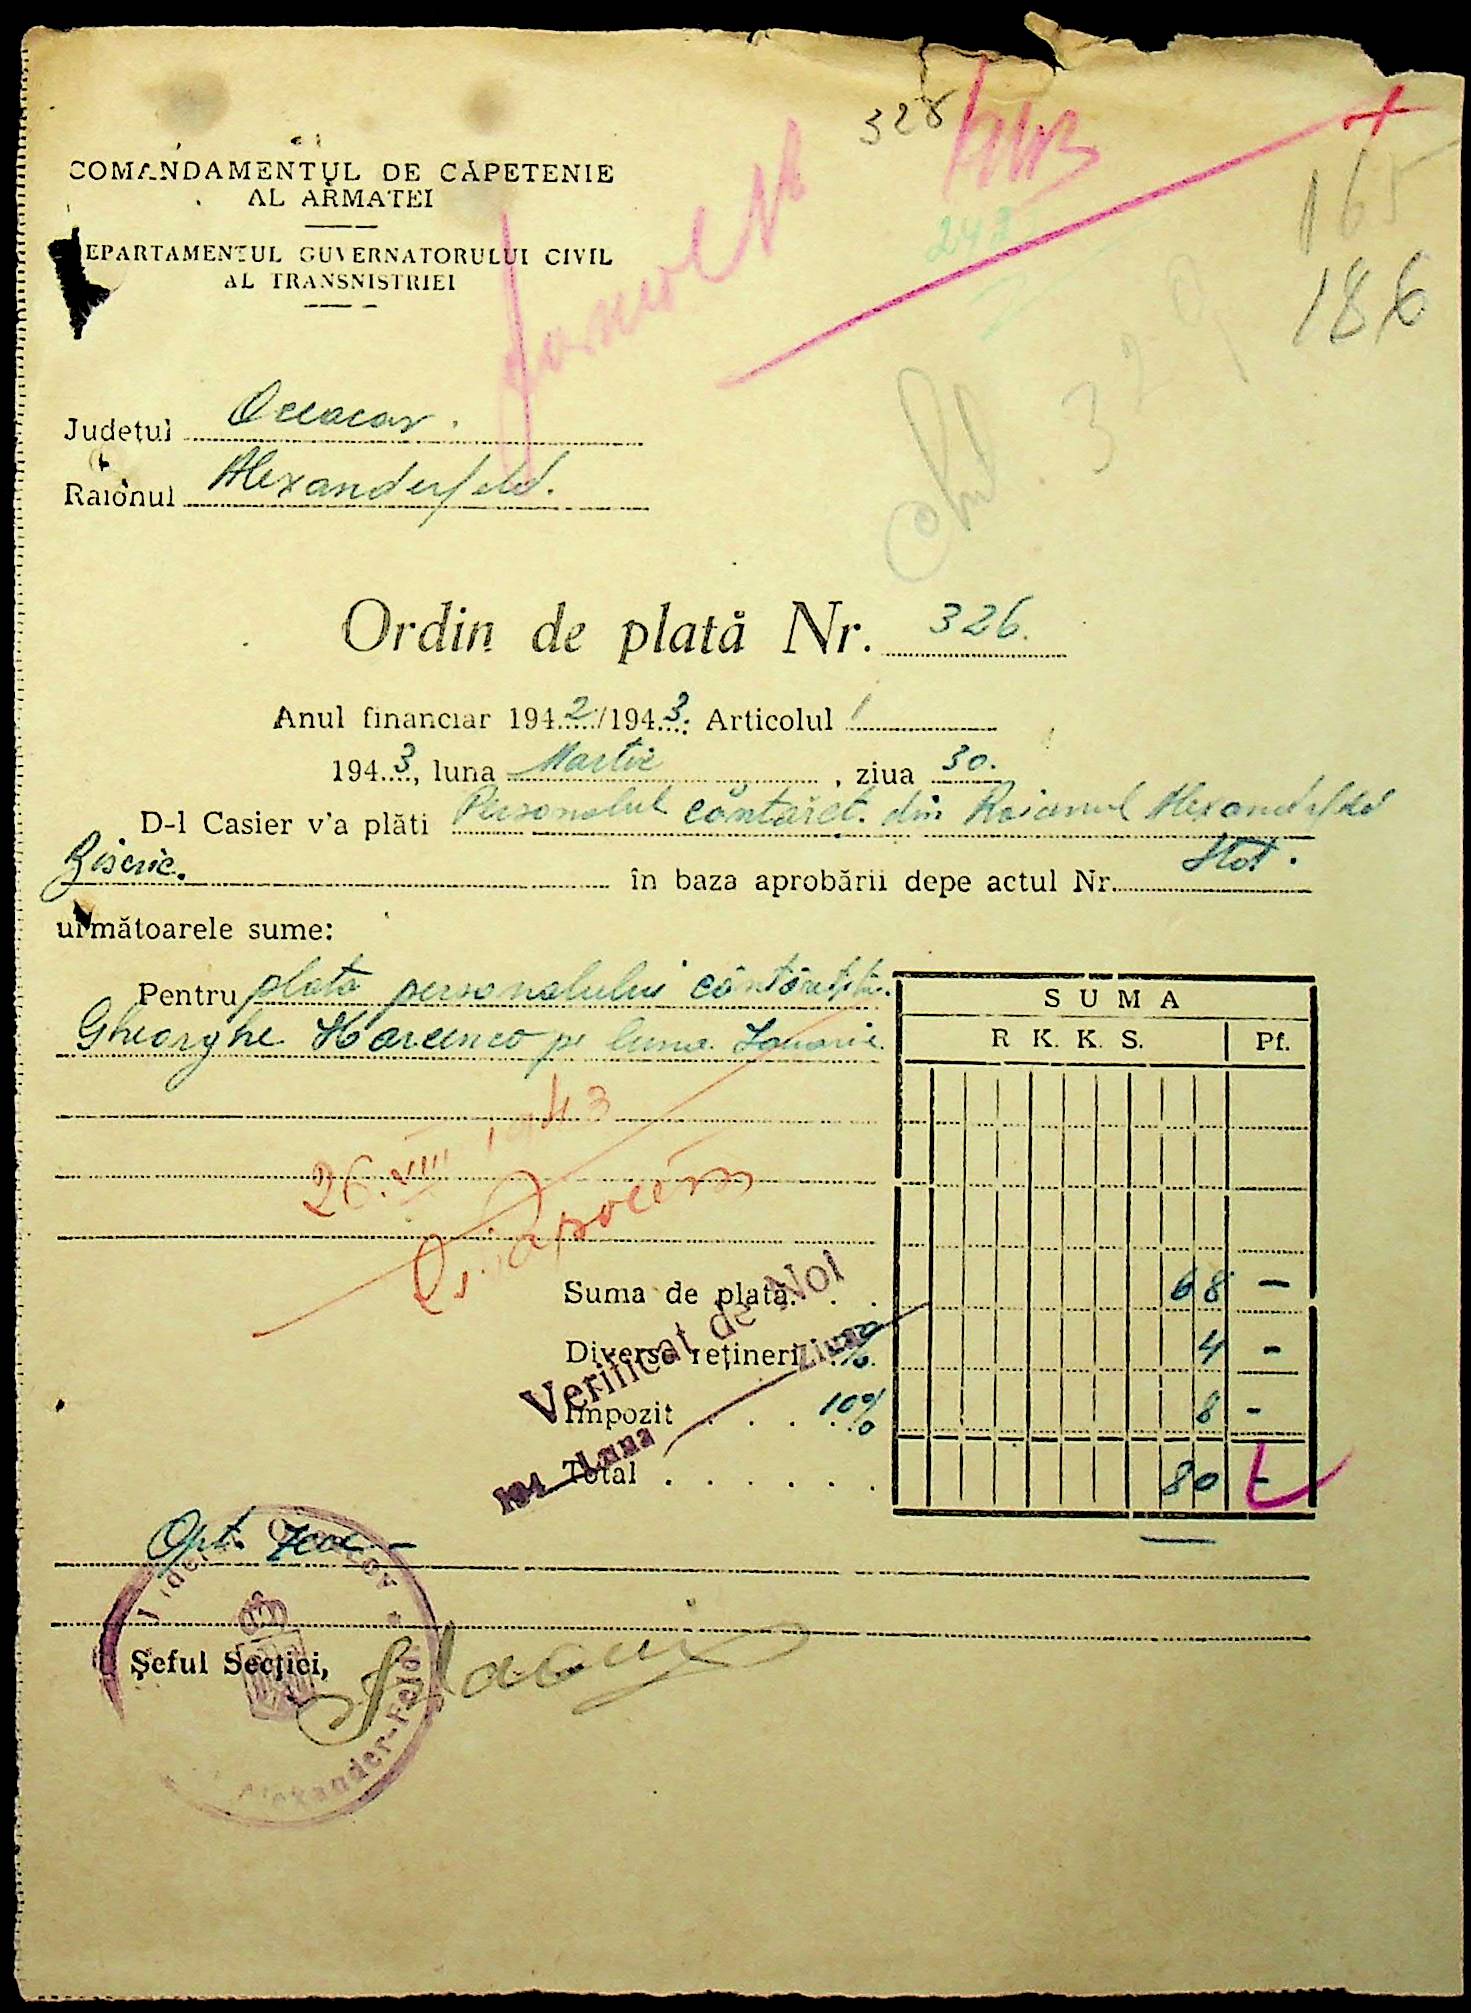 328
165
186
COMANDAMENTUL DE CĂPETENIE
AL ARMATEI
DEPARTAMENTUL GUVERNATORULUI CIVIL
AL TRANSNISTRIEI
329
Județul Oceacov.
Raionul Alexanderfeld.
Ordin de plată Nr. 326.
Anul financiar 1942/1943. Articolul 1
1943, luna Martie, ziua 30.
D-l Casier v'a plăti Personalul cântăreț. din Raionul Alexanderfeld
Biseric. în baza aprobării depe actul Nr. Stat.
următoarele sume:
Pentru plata personalului
Gheorghe pe luna Ianuarie
SUMA
R. K. K. S. Pf.
26.VIII 1943
Suma de plată. . . 68 –
Diverse rețineri % 4 –
Impozit . . . 10% 8 –
Total . . . . . . . 80 –
Verificat de Noi
194 Luna ziua
Opt zeci –
Șeful Secției,
Alexander-Feld